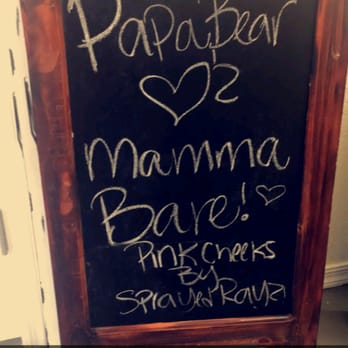 Papa Bear
♡2
Mamma
Bare! ♡
Pink Cheeks
By
Sprayed Rayz